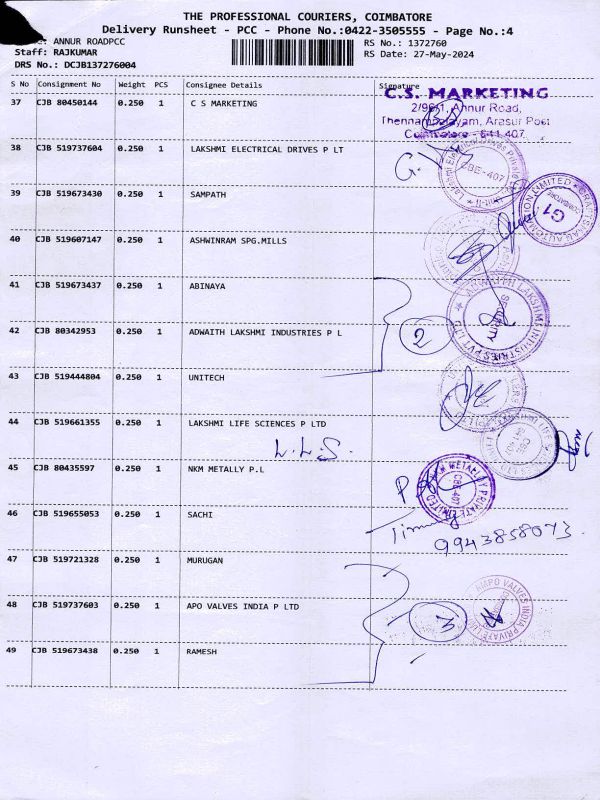 THE PROFESSIONAL COURIERS, COIMBATORE
Delivery Runsheet - PCC - Phone No.:0422-3505555 - Page No.:4
: ANNUR ROADPCC
RS No.: 1372760
Staff: RAJKUMAR
RS Date: 27-May-2024
DRS No.: DCJB137276004
S No Consignment No Weight PCS Consignee Details Signature
37 CJB 80450144 0.250 1 C S MARKETING
C.S. MARKETING
2/96/1, Annur Road,
Thennampalayam, Arasur Post
Coimbatore - 641 407.
38 CJB 519737604 0.250 1 LAKSHMI ELECTRICAL DRIVES P LT
CBE-407
39 CJB 519673430 0.250 1 SAMPATH
G1
40 CJB 519607147 0.250 1 ASHWINRAM SPG.MILLS
41 CJB 519673437 0.250 1 ABINAYA
ADWAITH LAKSHMI INDUSTRIES PVT LTD
Security
42 CJB 80342953 0.250 1 ADWAITH LAKSHMI INDUSTRIES P L
2
43 CJB 519444804 0.250 1 UNITECH
44 CJB 519661355 0.250 1 LAKSHMI LIFE SCIENCES P LTD
L.L.S.
45 CJB 80435597 0.250 1 NKM METALLY P.L
NKM METALLY PRIVATE LIMITED
CBE-407
46 CJB 519655053 0.250 1 SACHI
9943858073.
47 CJB 519721328 0.250 1 MURUGAN
48 CJB 519737603 0.250 1 APO VALVES INDIA P LTD
3
VALVES INDIA PRIVATE
49 CJB 519673438 0.250 1 RAMESH